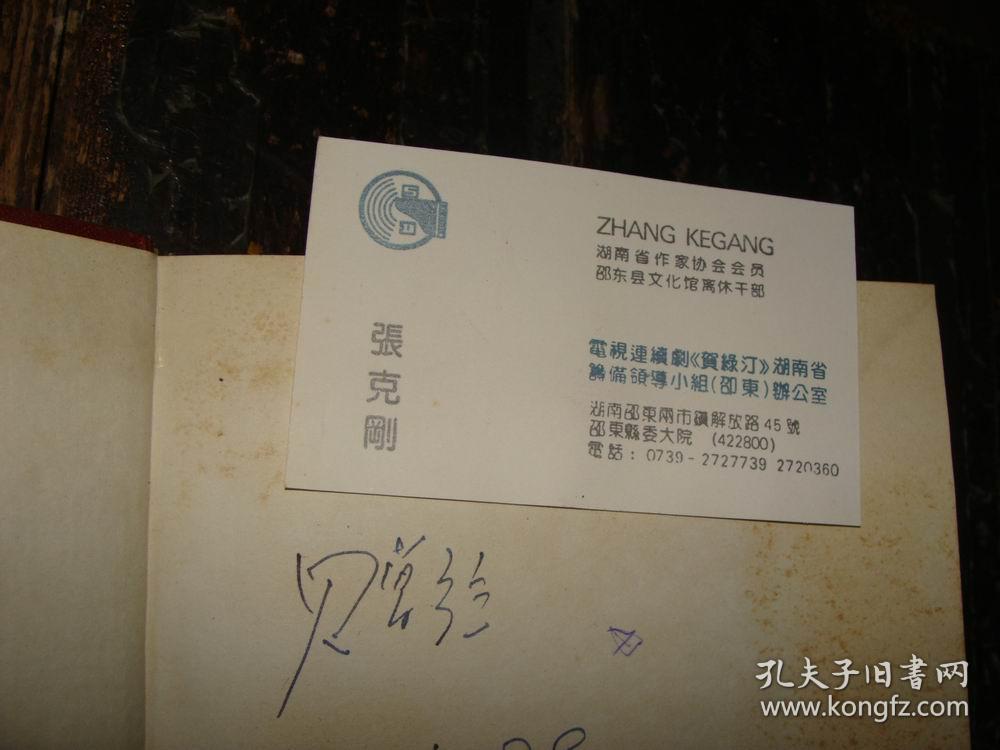 張克剛
ZHANG KEGANG
湖南省作家协会会员
邵东县文化馆离休干部
電視連續劇《賀綠汀》湖南省
籌備領導小組(邵東)辦公室
湖南邵東兩市鎮解放路45號
邵東縣委大院 (422800)
電話: 0739-2727739 2720360
孔夫子旧书网
www.kongfz.com